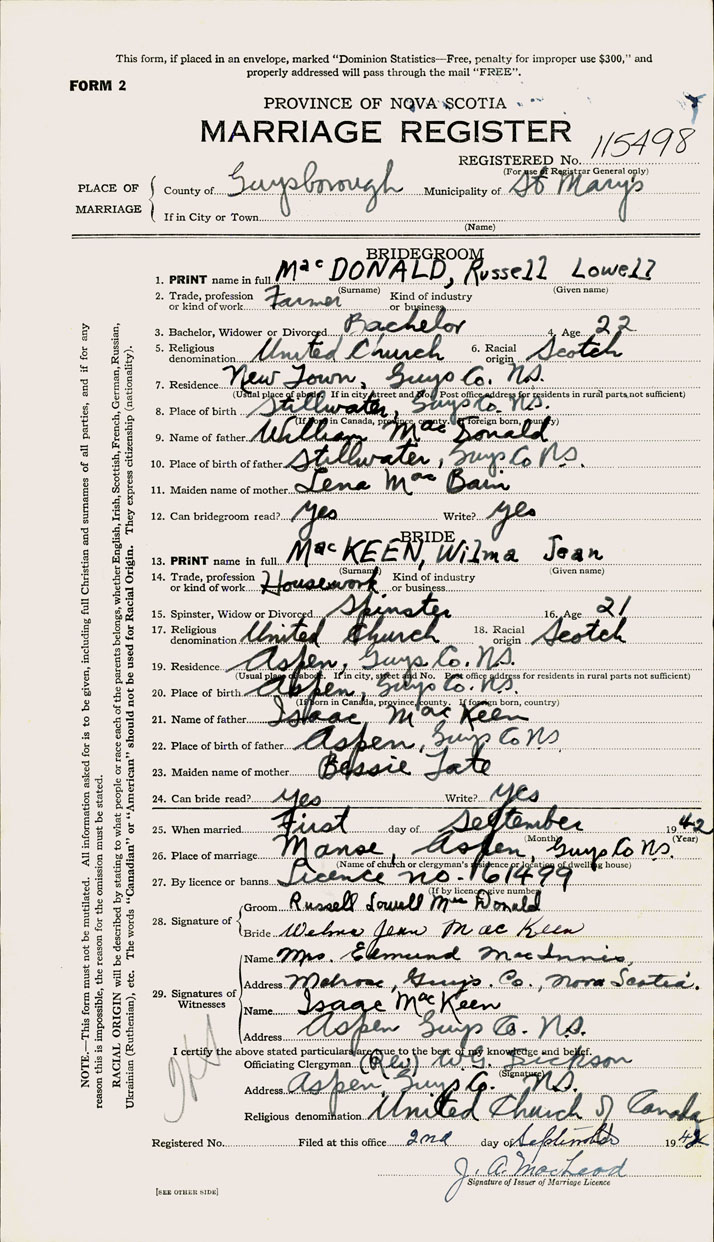 This form, if placed in an envelope, marked "Dominion Statistics—Free, penalty for improper use $300," and
properly addressed will pass through the mail "FREE".
FORM 2
PROVINCE OF NOVA SCOTIA
MARRIAGE REGISTER
REGISTERED No. 115498
(For use of Registrar General only)
PLACE OF MARRIAGE
County of Guysborough Municipality of St Marys
If in City or Town
(Name)
BRIDEGROOM
1. PRINT name in full MacDONALD, Russell Lowell
(Surname) (Given name)
2. Trade, profession or kind of work Farmer Kind of industry or business
3. Bachelor, Widower or Divorced Bachelor 4. Age 22
5. Religious denomination United Church 6. Racial origin Scotch
7. Residence New Town, Guys Co. N.S.
(Usual place of abode. If in city, street and No. Post office address for residents in rural parts not sufficient)
8. Place of birth Stillwater, Guys Co. N.S.
(If born in Canada, province, county. If foreign born, country)
9. Name of father William MacDonald
10. Place of birth of father Stillwater, Guys Co N.S.
11. Maiden name of mother Lena MacBain
12. Can bridegroom read? yes Write? yes
BRIDE
13. PRINT name in full MacKEEN, Wilma Jean
(Surname) (Given name)
14. Trade, profession or kind of work Housework Kind of industry or business
15. Spinster, Widow or Divorced Spinster 16. Age 21
17. Religious denomination United Church 18. Racial origin Scotch
19. Residence Aspen, Guys Co. N.S.
(Usual place of abode. If in city, street and No. Post office address for residents in rural parts not sufficient)
20. Place of birth Aspen, Guys Co. N.S.
(If born in Canada, province, county. If foreign born, country)
21. Name of father Isaac MacKeen
22. Place of birth of father Aspen, Guys Co NS
23. Maiden name of mother Bessie Tate
24. Can bride read? yes Write? yes
25. When married First day of September 1942
(Month) (Year)
26. Place of marriage Manse, Aspen, Guys Co N.S.
(Name of church or clergyman's residence or location of dwelling house)
27. By licence or banns Licence no. 161499
(If by licence give number)
28. Signature of
Groom Russell Lowell MacDonald
Bride Wilma Jean MacKeen
29. Signatures of Witnesses
Name Mrs. Edmund MacInnis
Address Melrose, Guys. Co., Nova Scotia.
Name Isaac MacKeen
Address Aspen Guys Co. N.S.
I certify the above stated particulars are true to the best of my knowledge and belief.
Officiating Clergyman (Rev) W.G. Dickson
(Signature)
Address Aspen, Guys Co. N.S.
Religious denomination United Church of Canada
Registered No. Filed at this office 2nd day of September 1942
J. A. MacLeod
Signature of Issuer of Marriage Licence
[SEE OTHER SIDE]
NOTE.—This form must not be mutilated. All information asked for is to be given, including full Christian and surnames of all parties, and if for any
reason this is impossible, the reason for the omission must be stated.
RACIAL ORIGIN will be described by stating to what people or race each of the parents belongs, whether English, Irish, Scottish, French, German, Russian,
Ukrainian (Ruthenian), etc. The words "Canadian" or "American" should not be used for Racial Origin. They express citizenship (nationality).